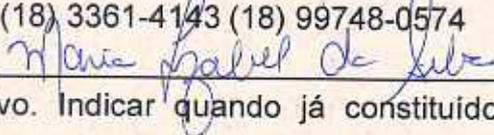 (18) 3361-4143 (18) 99748-0574
Maria Izabel da Silva
vo. Indicar quando já constituído